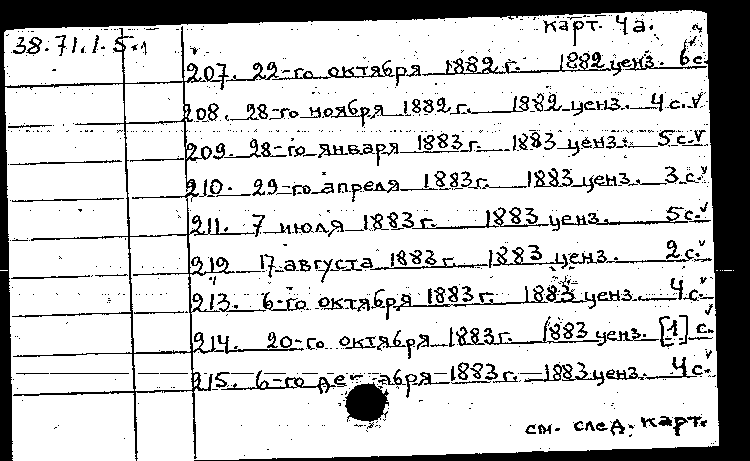 карт. 4а.
38.71.1.5.1
207. 22-го октября 1882 г. 1882 ценз. 6 с.
208. 28-го ноября 1882 г. 1882 ценз. 4 с. √
209. 28-го января 1883 г. 1883 ценз. 5 с. √
210. 29-го апреля 1883 г. 1883 ценз. 3 с. √
211. 7 июля 1883 г. 1883 ценз. 5 с. √
212 17 августа 1883 г. 1883 ценз. 2 с. √
213. 6-го октября 1883 г. 1883 ценз. 4 с. √
214. 20-го октября 1883 г. 1883 ценз. [1] с. √
215. 6-го декабря 1883 г. 1883 ценз. 4 с. √
см. след. карт.